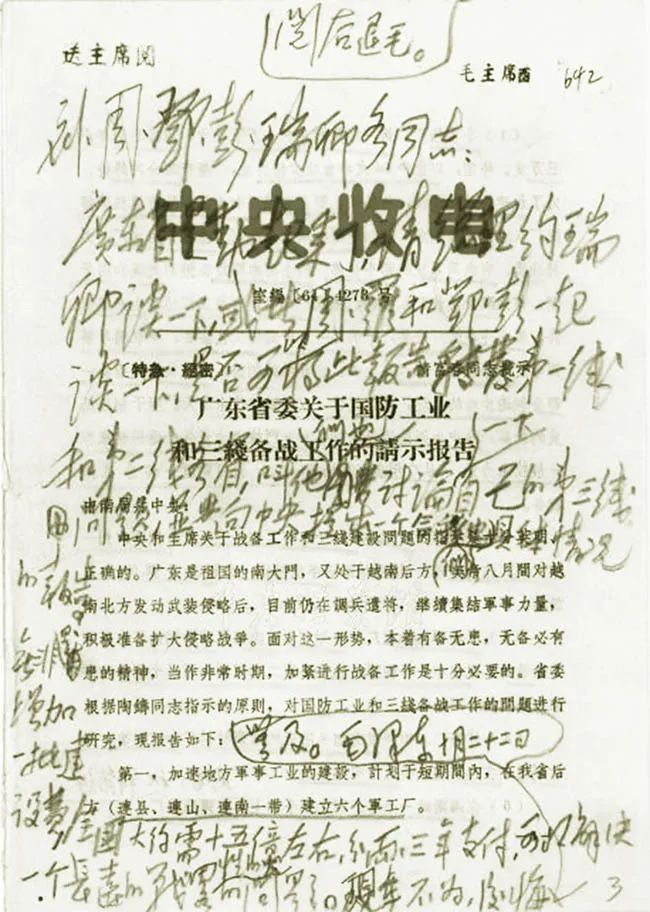 阅后退毛。
送主席閲
毛主席酉 642
刘、周、鄧、彭、瑞卿各同志:
中央收电
廣东省是動起来了,請总理约瑞
室编〔64〕4278号
卿谈一下,或者周、羅和鄧、彭一起
〔特急·絕密〕
谈一下,是否可将此報告转發第一线
广东省委关于国防工业
和三綫备战工作的請示报告
和第二线各省,叫他们也討論一下自己的第三线
问题,并向中央提出一个合乎他们具体情况
中央和主席关于战备工作和三綫建設問題的指示是十分英明、
正确的。广东是祖国的南大門,又处于越南后方,美帝八月間对越
南北方发动武装侵略后,目前仍在調兵遣将,继續集結軍事力量,
积极准备扩大侵略战争。面对这一形势,本着有备无患,无备必有
患的精神,当作非常时期,加紧进行战备工作是十分必要的。省委
根据陶鑄同志指示的原則,对国防工业和三綫备战工作的問題进行
研究,现报告如下:
第一,加速地方軍事工业的建設,計划于短期間內,在我省后
方(連县、連山、連南一带)建立六个軍工厂。
的報告。
無非
增加
一批建
设费,全国大约需十五億左右,分两三年支付,可以解决
一个長遠的戰畧性问题。现在不为,后悔
莫及。毛澤东 十月二十二日
3